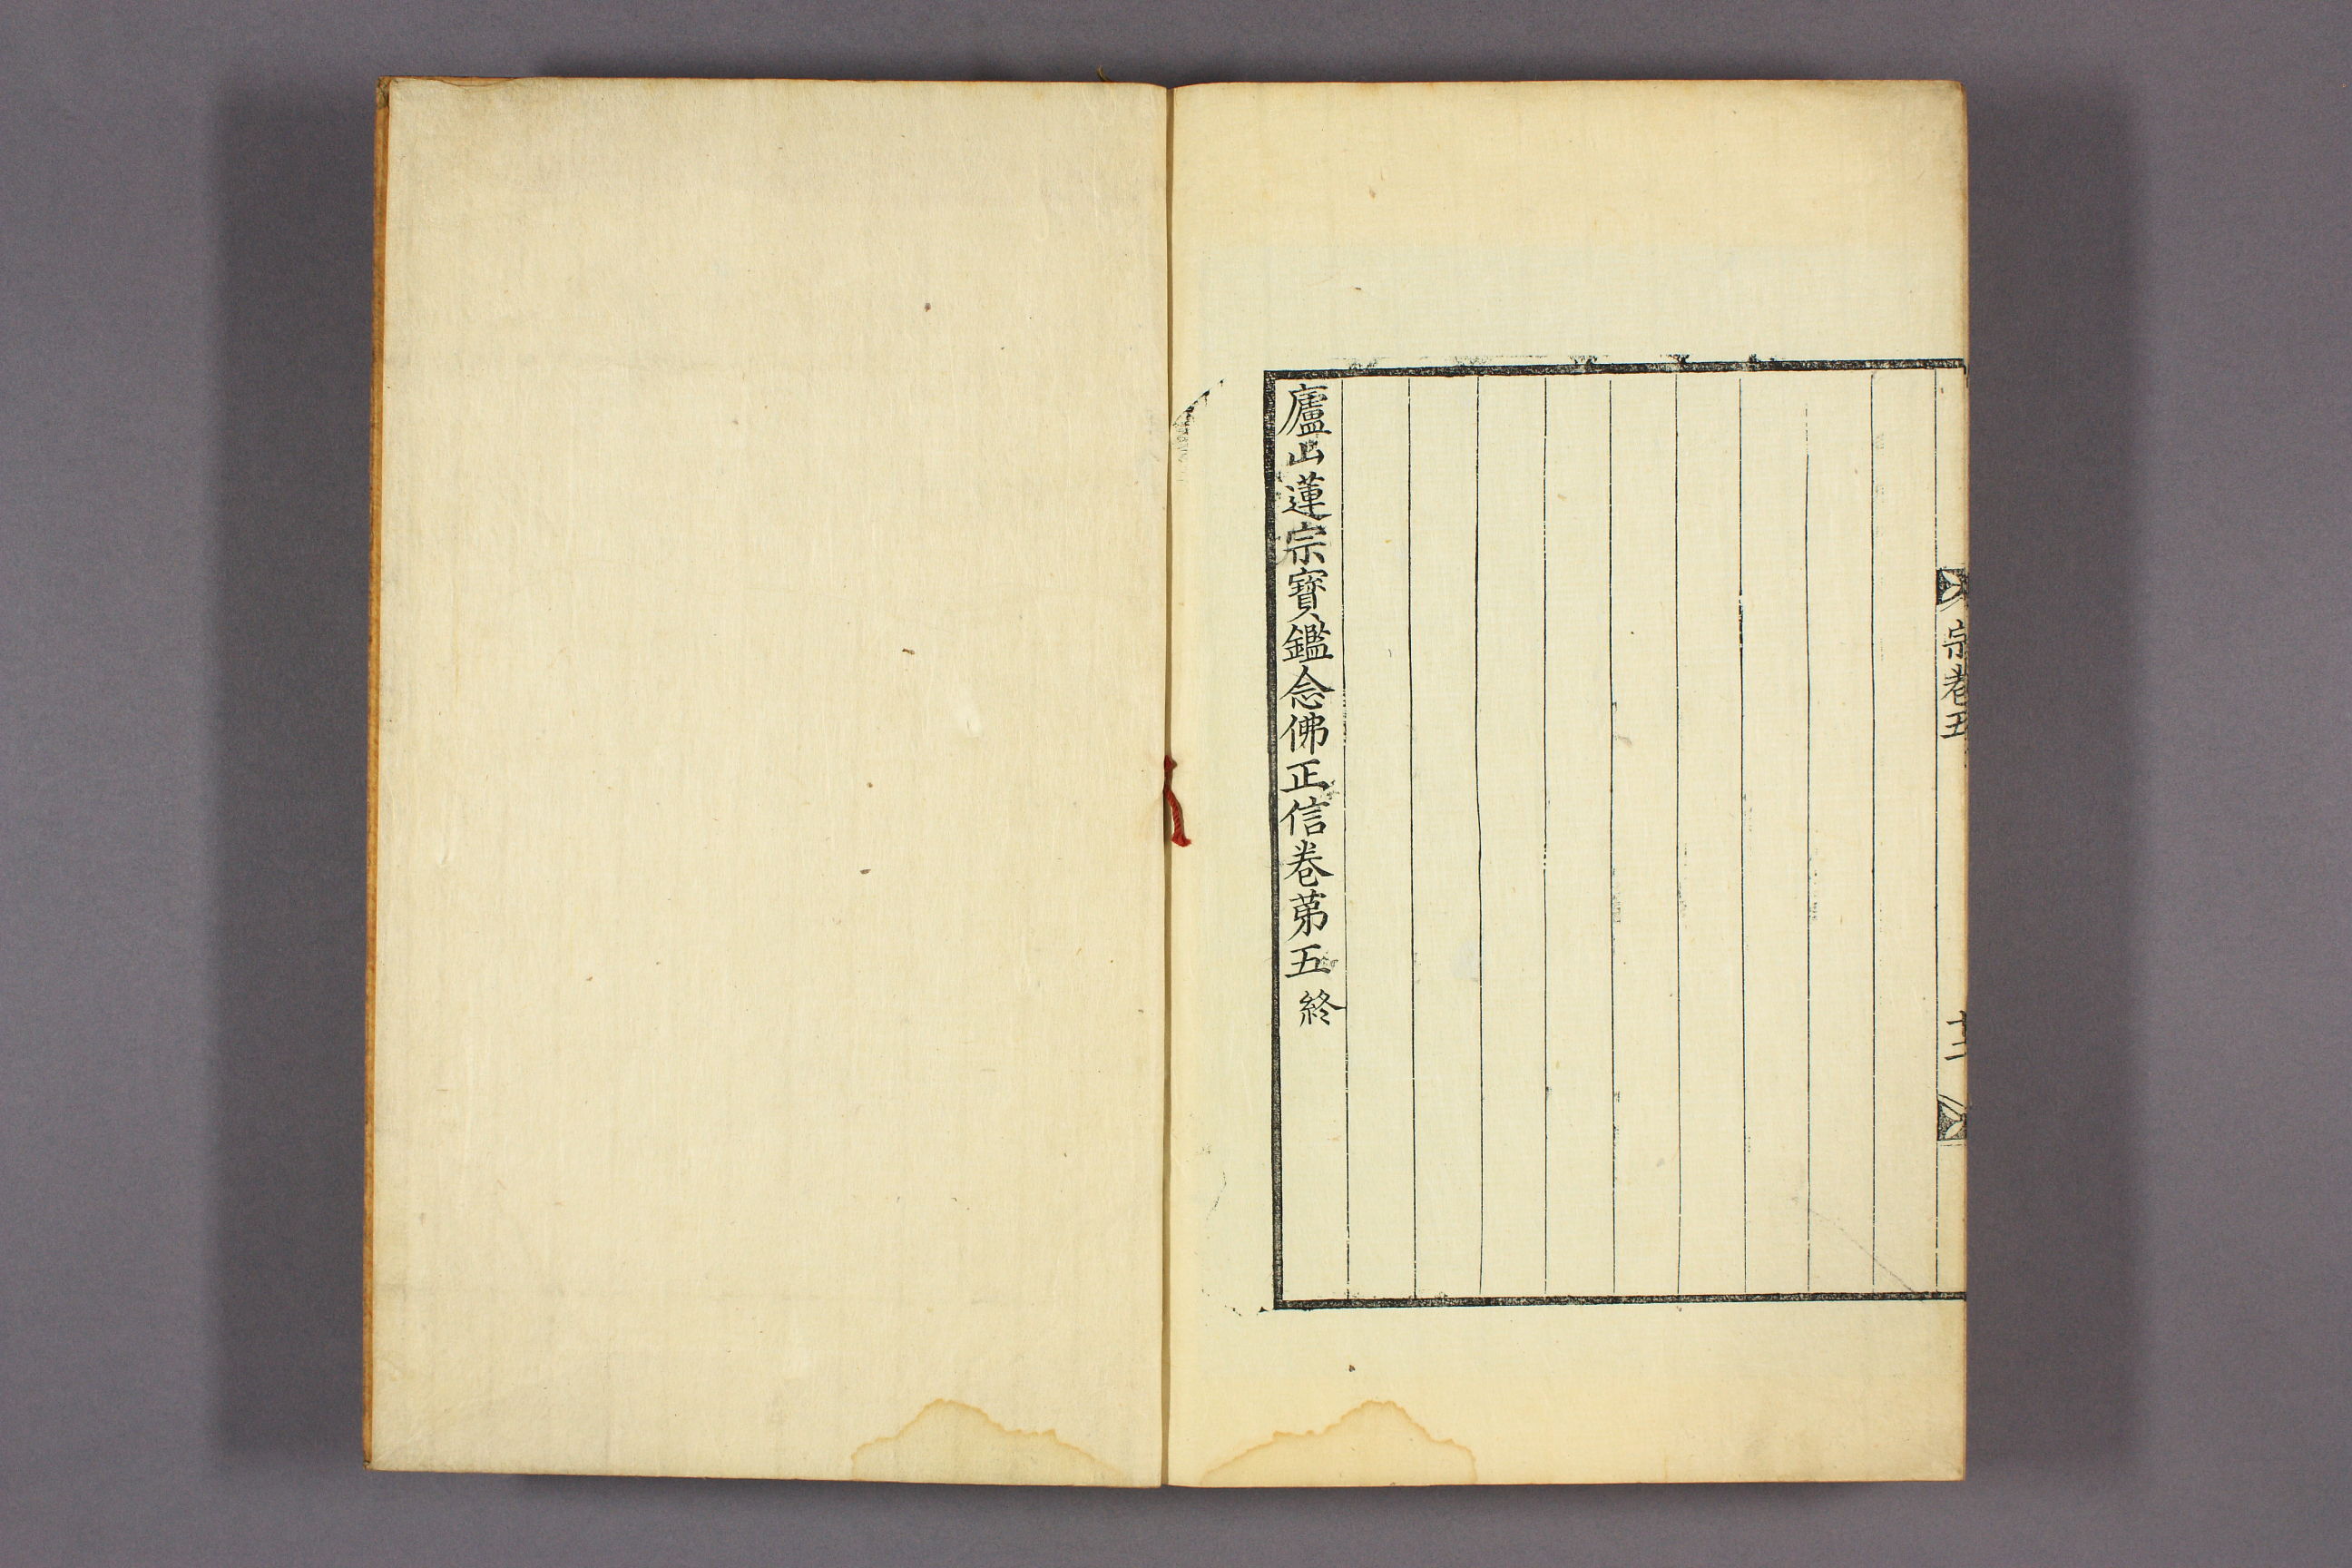 宗卷五
廬山蓮宗寶鑑念佛正信卷第五 終